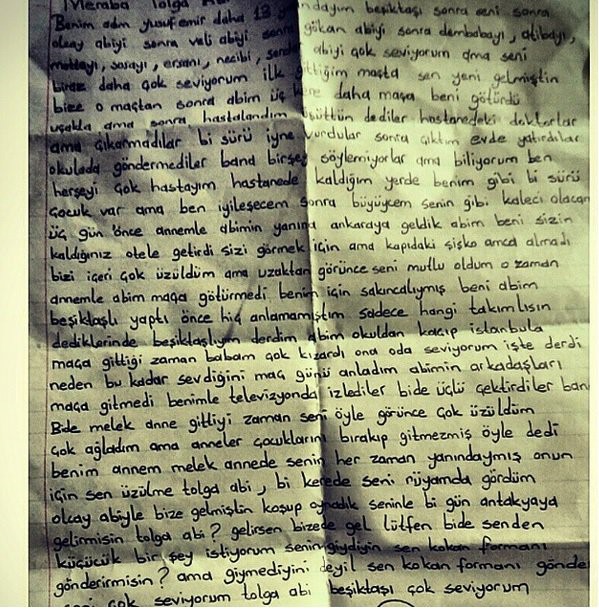 Meraba Tolga
Benim adım yusuf emir daha 13 ndayım beşiktaşı sonra seni sonra
olcay abiyi sonra veli abiyi sonra gökan abiyi sonra dembabayı, atibayı,
mottayı, sosayı, ersanı, necibi, abiyi çok seviyorum ama seni
biraz daha çok seviyorum ilk gittiğim maçta sen yeni gelmiştin
bize o maçtan sonra abim üç kere daha maça beni götürdü
uçakla ama sonra hastalandım üşüttün dediler hastanedeki doktorlar
ama çıkarmadılar bi sürü iyne vurdular sonra çıktım evde yatırdılar
okulada göndermediler bana birşey söylemiyorlar ama biliyorum ben
herşeyi çok hastayım hastanede kaldığım yerde benim gibi bi sürü
çocuk var ama ben iyileşecem sonra büyüycem senin gibi kaleci olacam
üç gün önce annemle abimin yanına ankaraya geldik abim beni sizin
kaldığınız otele getirdi sizi görmek için ama kapıdaki şişko amca almadı
bizi içeri çok üzüldüm ama uzaktan görünce seni mutlu oldum o zaman
annemle abim maça götürmedi benim için sakıncalıymış beni abim
beşiktaşlı yaptı önce hiç anlamamıştım sadece hangi takımlısın
dediklerinde beşiktaşlıyım derdim abim okuldan kaçıp istanbula
maça gittiği zaman babam çok kızardı ona oda seviyorum işte derdi
neden bu kadar sevdiğini maç günü anladım abimin arkadaşları
maça gitmedi benimle televizyonda izlediler bide üçlü çektirdiler bana
Bide melek anne gittiyi zaman seni öyle görünce çok üzüldüm
çok ağladım ama anneler çocuklarını bırakıp gitmezmiş öyle dedi
benim annem melek annede senin her zaman yanındaymış onun
için sen üzülme tolga abi, bi kerede seni rüyamda gördüm
olcay abiyle bize gelmiştin koşup oynadık seninle bi gün antakyaya
gelirmisin tolga abi? gelirsen bizede gel lütfen bide senden
küçücük bir şey istiyorum senin giydiyin sen kokan formanı
gönderirmisin? ama giymediyini deyil sen kokan formanı gönder
seni çok seviyorum tolga abi beşiktaşı çok seviyorum